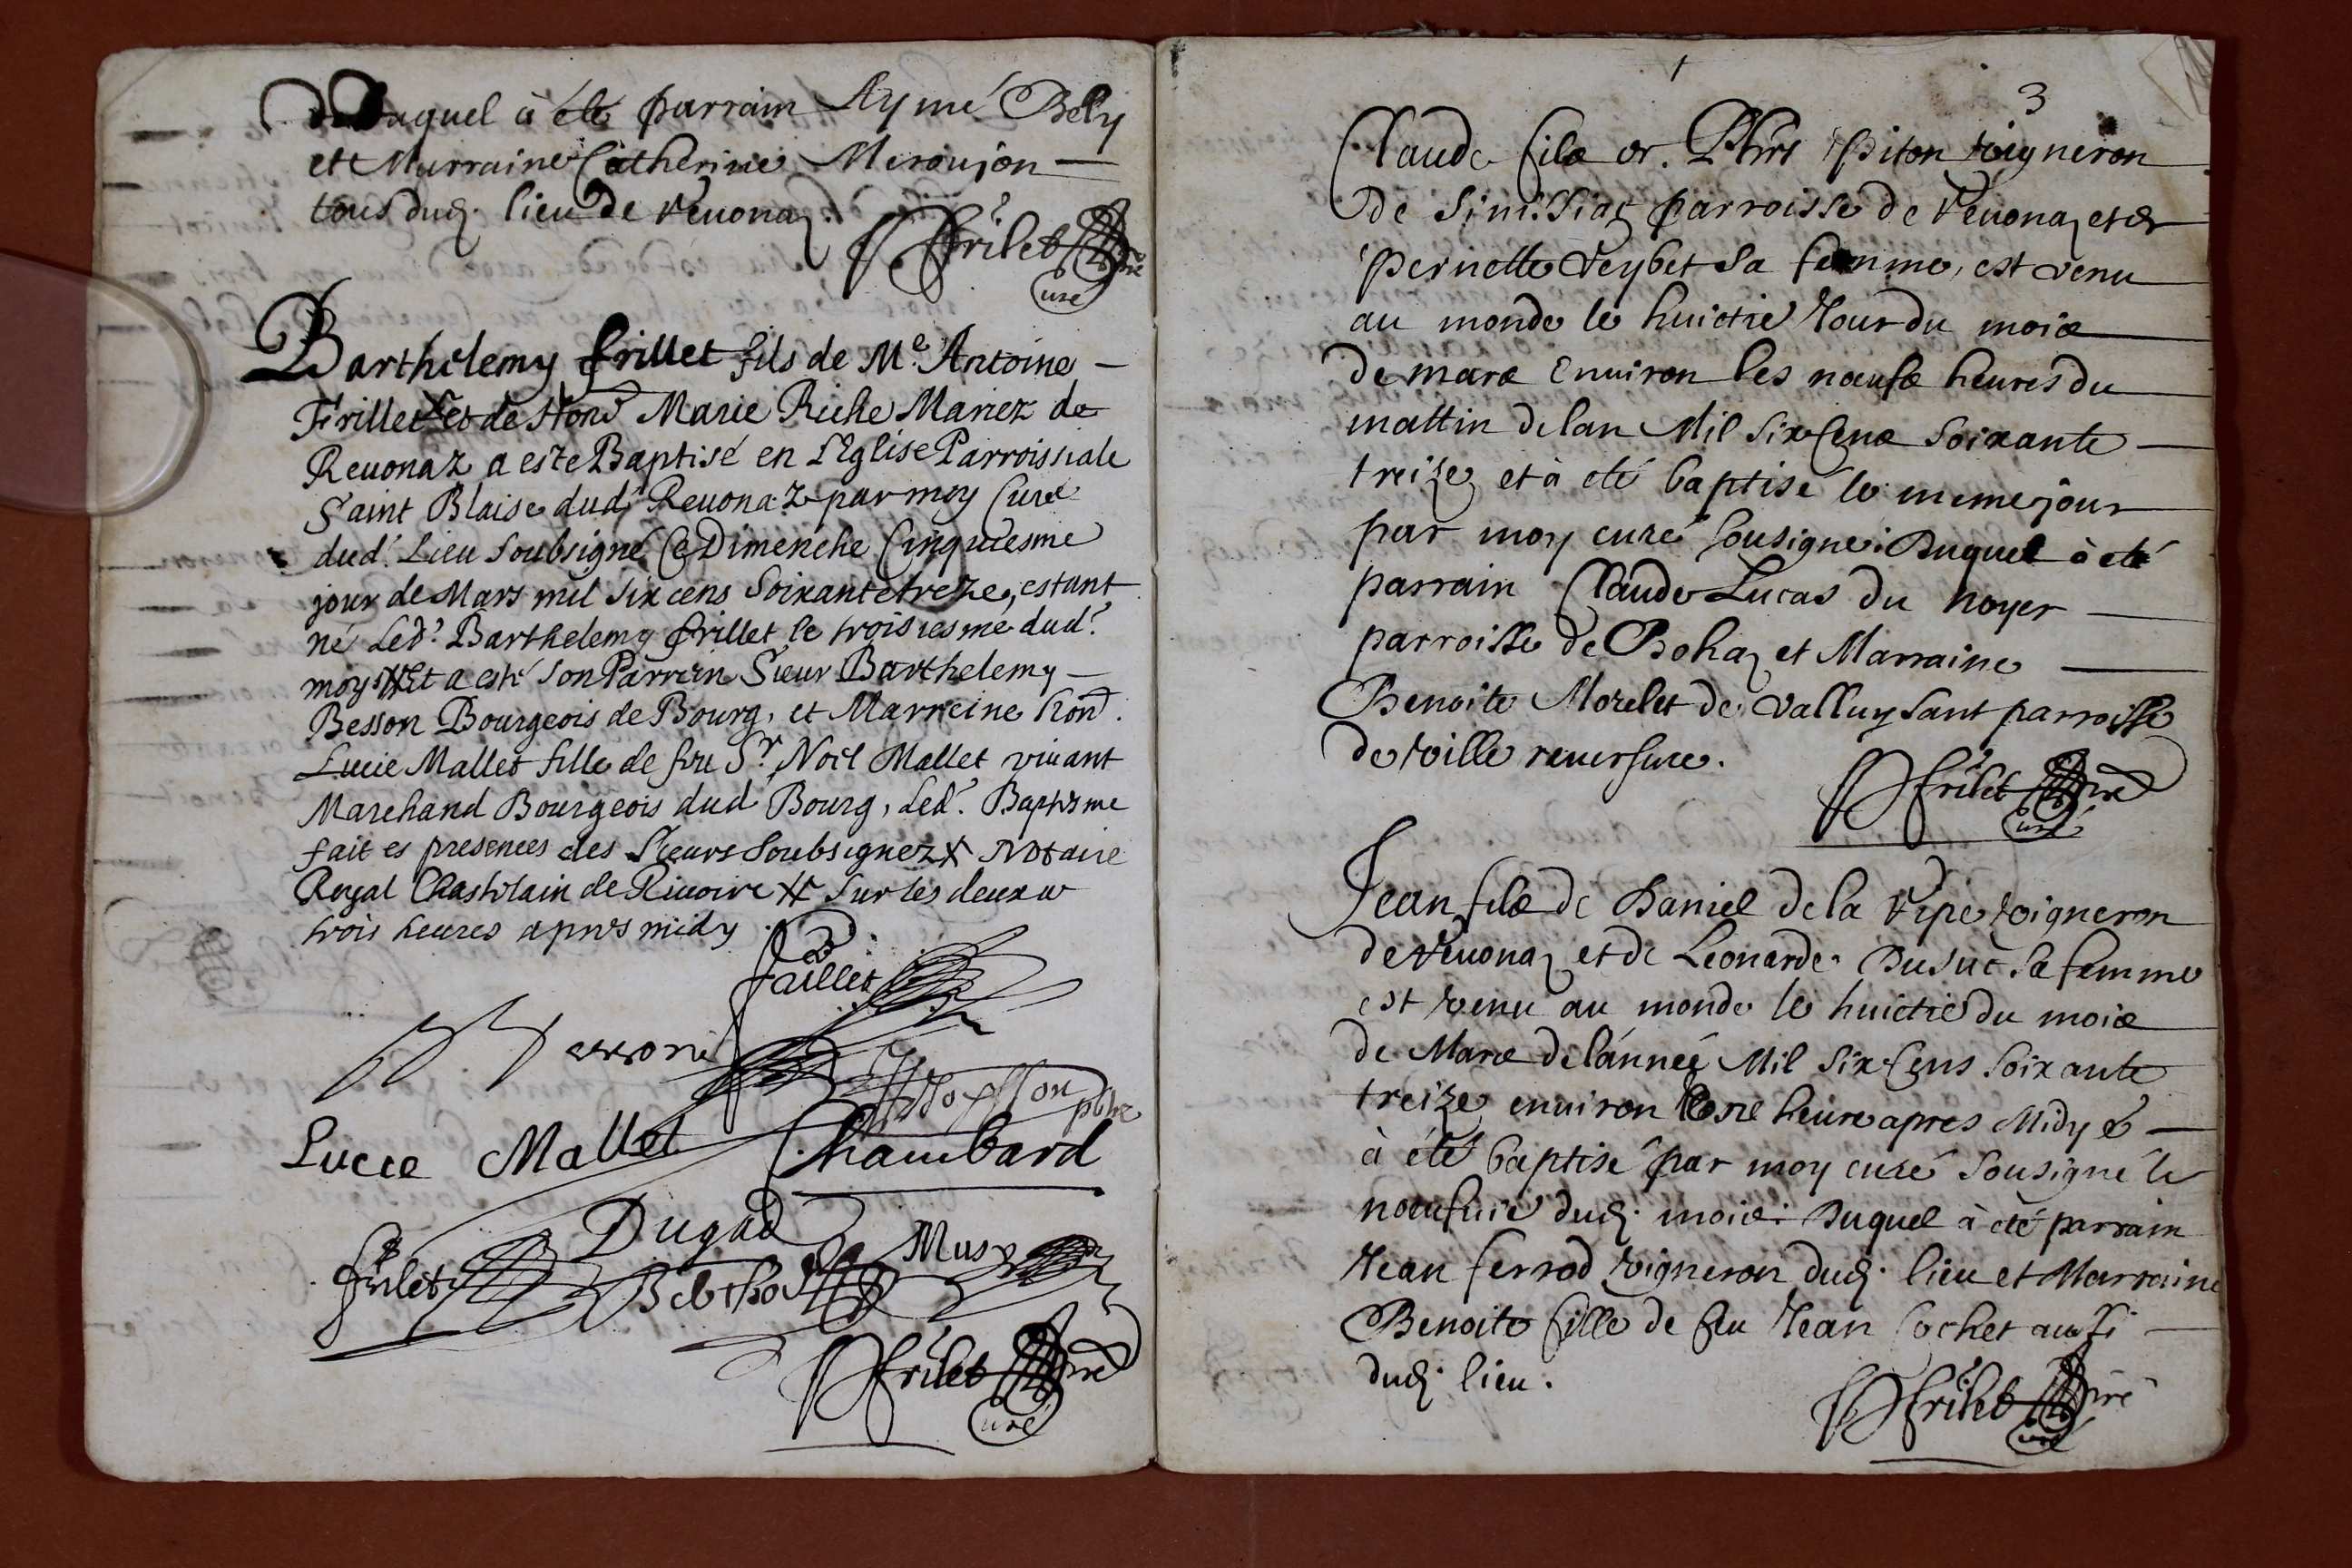 duquel à été parrain Aymé Bely
et Marraine Catherine Meroujon
tous dud. lieu de Reuonaz.
Frilet pre
Curé
Barthelemy frillet fils de Me. Antoine
Frillet et de Hond Marie Riche Mariez de
Reuonaz a este Baptisé en L'Eglise Parroissiale
Saint Blaise dud. Reuonaz par moy Curé
dud. Lieu soubsigné Ce Dimenche Cinquiesme
jour de Mars mil six cens soixante treze, estant
né Led. Barthelemy frillet le troisiesme dud.
moys Et a esté son Parrein Sieur Barthelemy
Besson Bourgeois de Bourg, et Marreine hond.
Lucie Mallet fille de feu Sr. Noël Mallet viuant
Marchand Bourgeois dud Bourg, Led. Baptesme
fait es presences des Sieurs soubsignez Notaire
Royal Chastelain de Riuoire sur les deux ou
trois heures apres midy
faillet
Lucie Mallet
Chambard
Dugad
Mus
frilet
Frilet pre
Curé
3
Claude fils de Piton vigneron
de Simissiaz parroisse de Reuonaz et de
Pernette Veybet sa femme, est venu
au monde le huictie Jour du mois
de mars enuiron les noeufs heures du
mattin de lan Mil Six Cens Soixante
treize et à été baptisé le meme jour
par moy curé sousigné. Duquel à été
parrain Claude Lucas du noyer
parroisse de Bohaz et Marraine
Benoite Morelet de valluysant parroisse
de ville reuersure.
frilet pre
Curé
Jean fils de Daniel de la Ripe vigneron
de Reuonaz et de Leonarde Dusuc sa femme
est venu au monde le huictie du mois
de Mars de l'année Mil Six Cens Soixante
treize enuiron heure apres Midy &
à été baptisé par moy curé sousigné le
noeufuie dud. mois. Duquel à été parrain
Jean ferrod vigneron dud. lieu et Marraine
Benoite fille de feu Jean Cochet aussi
dud. lieu.
frilet pre
Curé